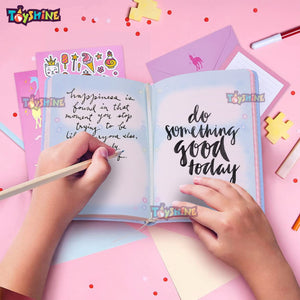 TOYSHINE
TOYSHINE
happiness is
found in that
moment you stop
trying to be
do
something
good
today
TOYSHINE
TOYSHINE